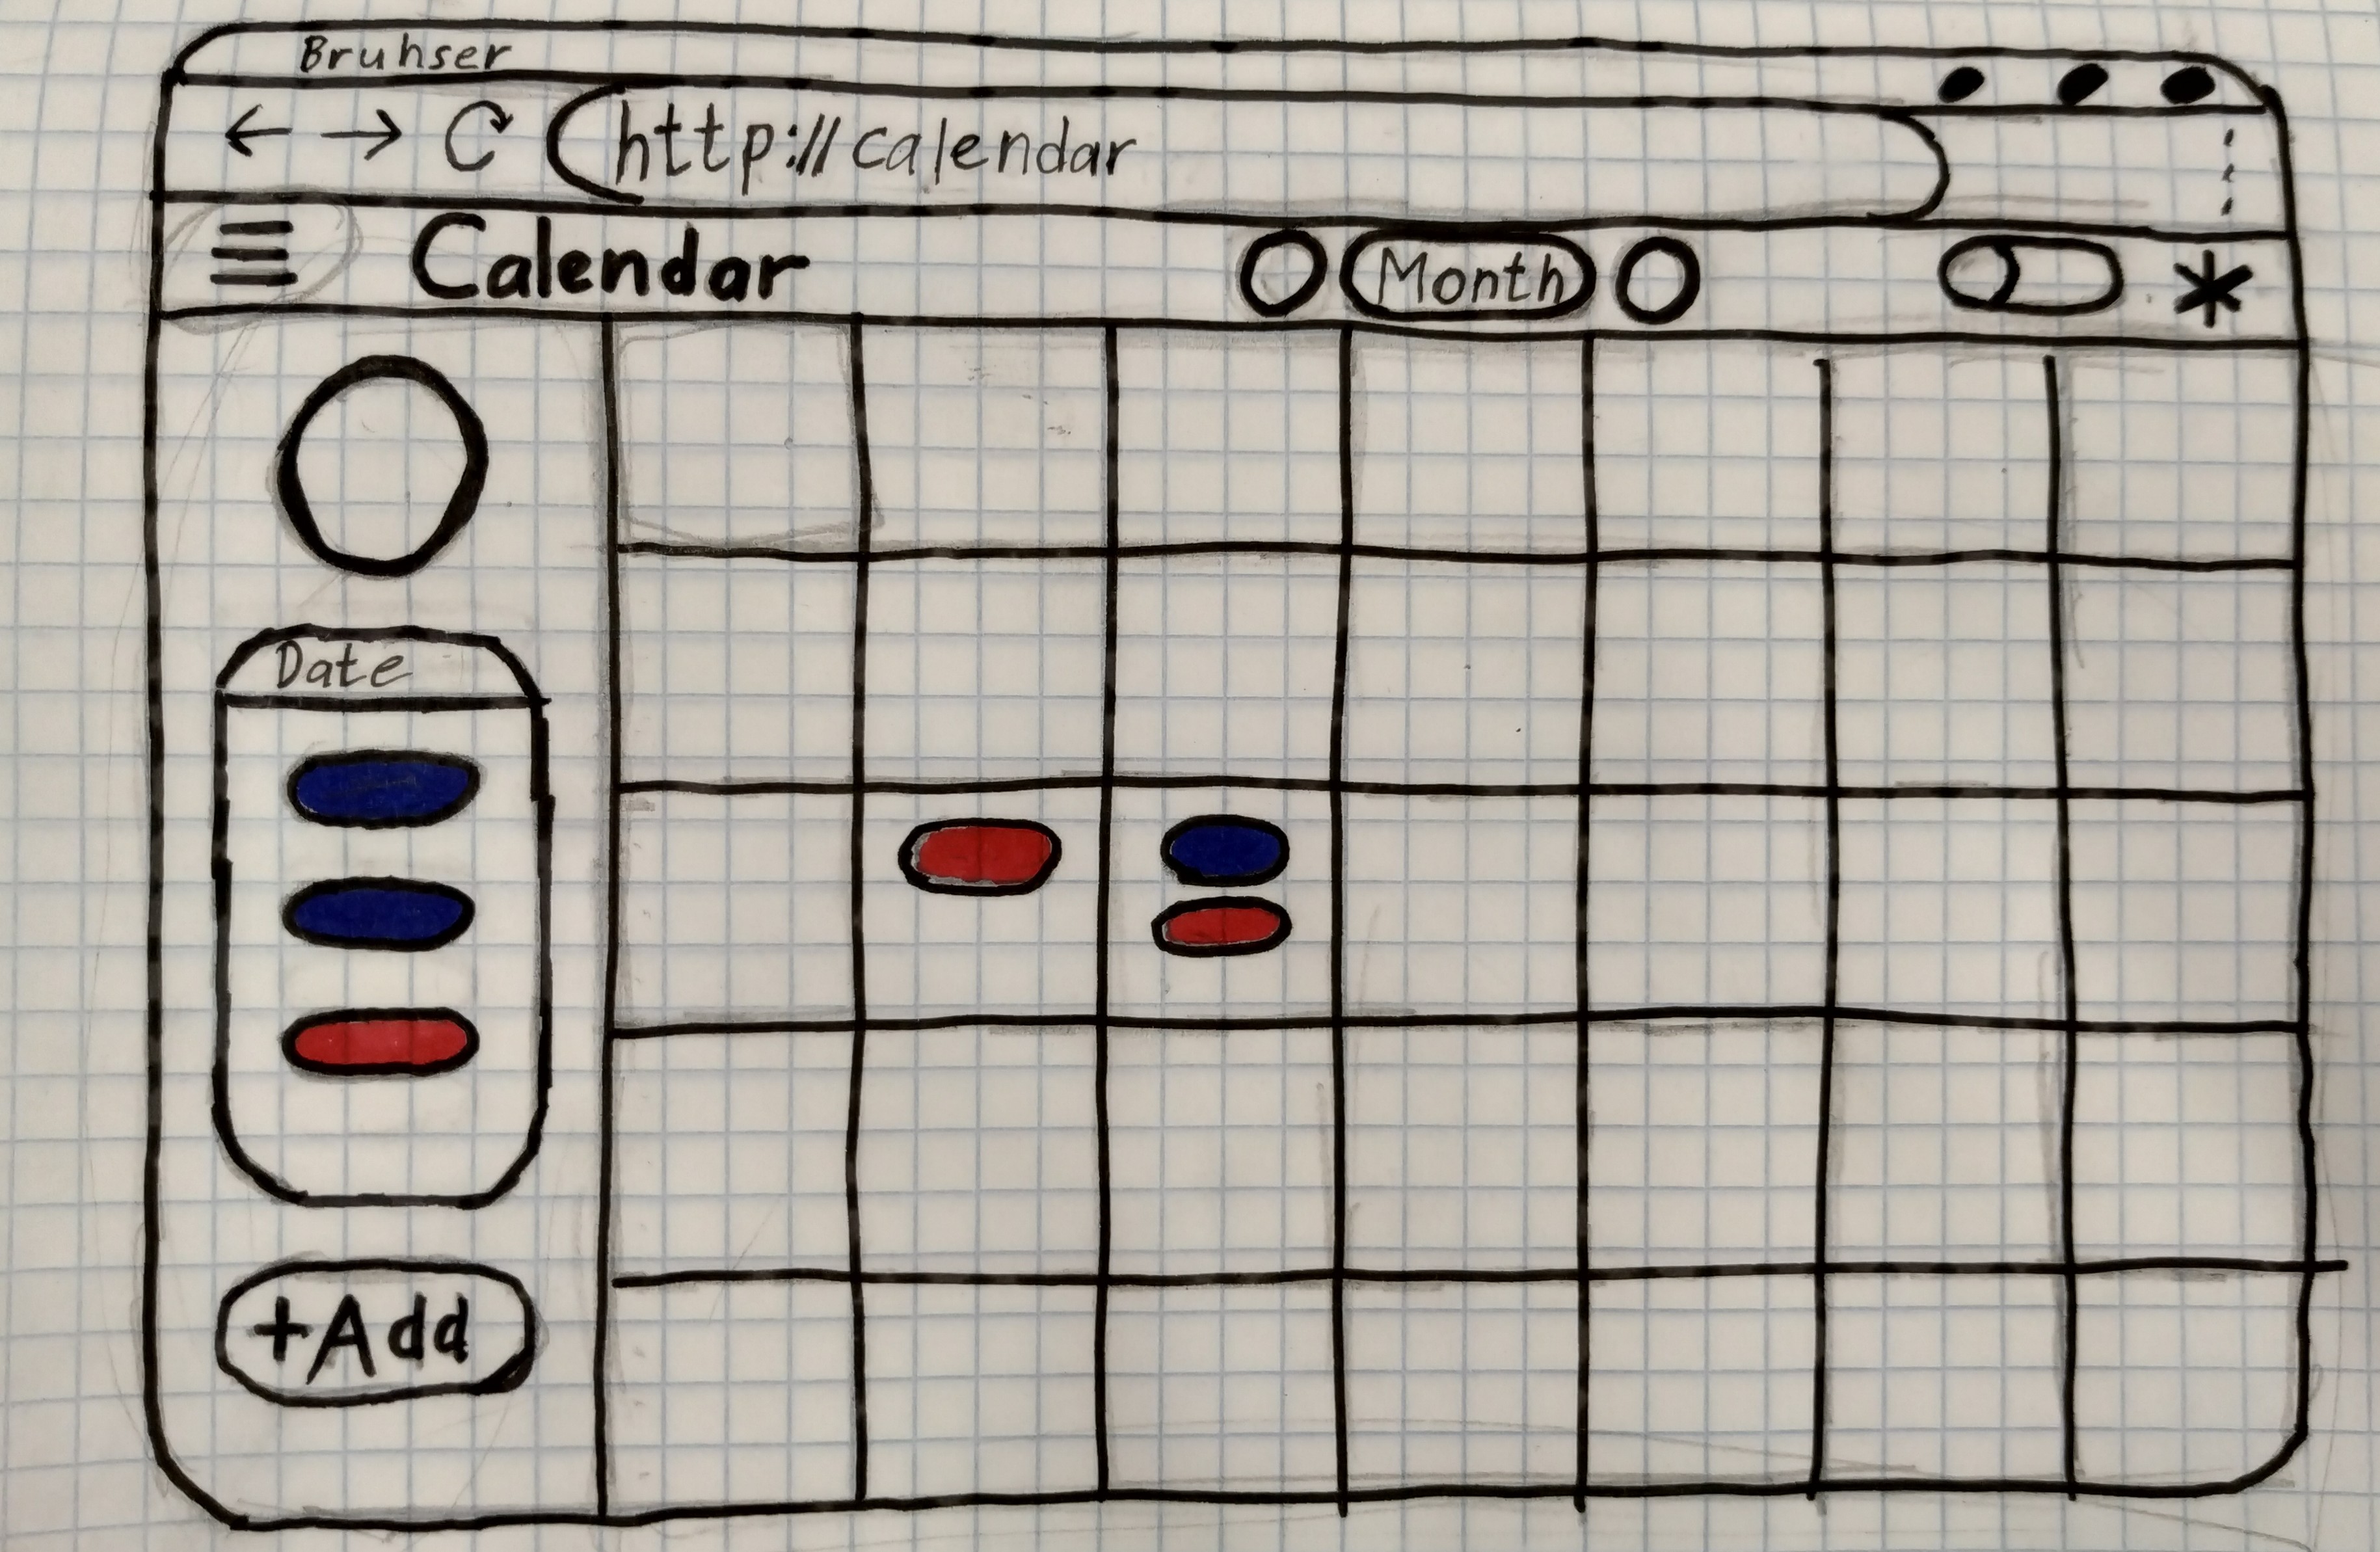 Bruhser
http://calendar
Calendar
Month
Date
+Add